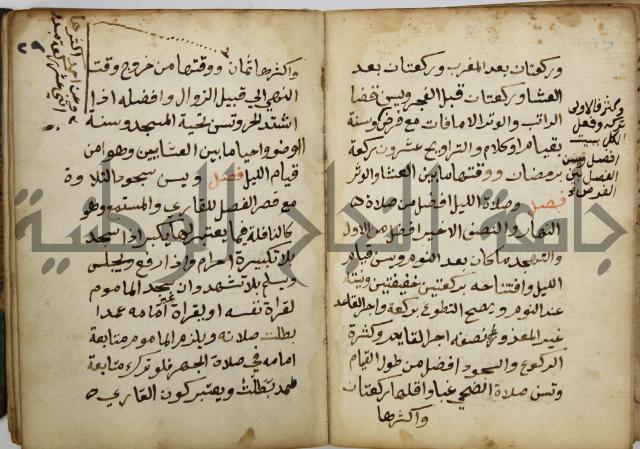 وركعتان بعد المغرب وركعتان بعد
العشا وركعتان قبل الفجر ويسن قضا
الراتب والوتر الا مافات مع فرض وسنة
بقيام او كلام والتراويح عشرون ركعة
برمضان ووقتها ما بين العشا والوتر
فصل وصلاة الليل افضل من صلاة
النهار والنصف الاخير افضل من الاول
والتهجد ما كان بعد النوم ويسن قيام
الليل وافتتاحه بركعتين خفيفتين ونيته
عند النوم ويصح التطوع بركعة واجر القاعد
غير المعذور نصف اجر القايم وكثرة
الركوع والسجود افضل من طول القيام
وتسن صلاة الضحى غبا واقلها ركعتان
واكثرها
فالاولى
وفعل
الكل ببيت
افضل ويسن
الفصل بين
الفرض
واكثرها ثمان ووقتها من خروج وقت
النهي الى قبيل الزوال وافضله اذا
اشتد الحر وتسن تحية المسجد وسنة
الوضو واحيا ما بين العشايين وهو من
قيام الليل فصل ويسن سجود التلاوة
مع قصر الفصل للقاري والمستمع وهو
كالنافلة فيما يعتبر لها يكبر اذا سجد
بلا تكبيرة احرام واذا رفع ويجلس
ويسلم بلا تشهد وان سجد الماموم
لقراة نفسه او لقراة غير امامه عمدا
بطلت صلاته ويلزم الماموم متابعة
امامه في صلاة الجهر فلو ترك متابعة
عمدا بطلت ويعتبر كون القاري
جامعة النجاح الوطنية